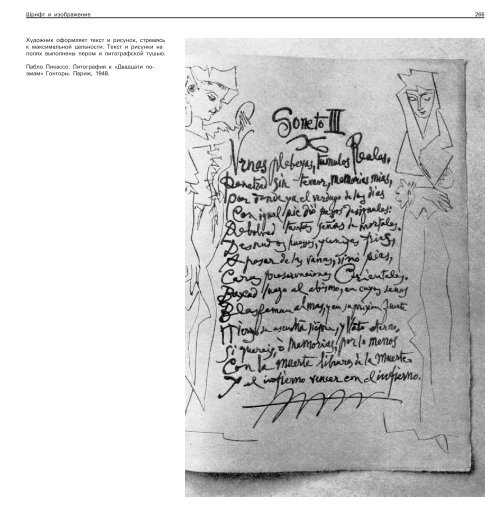 Шрифт и изображение
266
Художник оформляет текст и рисунок, стремясь
к максимальной цельности. Текст и рисунки на
полях выполнены пером и литографской тушью.
Пабло Пикассо. Литография к «Двадцати по-
эмам» Гонгоры. Париж, 1948.
Soneto III
Vrnas plebeyas, tumulos Reales,
Penetrad sin temor, memorias mias,
por donde ya el verdugo de los dias
Con igual pie dió pasos desiguales:
Rebolved tantas señas de mortales,
Desnudos huesos, y cenizas frias,
A pesar de las vanas, si no pias,
Caras preservaciones Orientales.
Baxad luego al abismo, en cuyos senos
Blasfeman almas, y en su prision fuerte
Hierros se escuchan siempre, y llanto eterno,
Si quereis, ò memorias, por lo menos
Con la muerte libraros de la muerte.
Y el infierno vencer con el infierno.